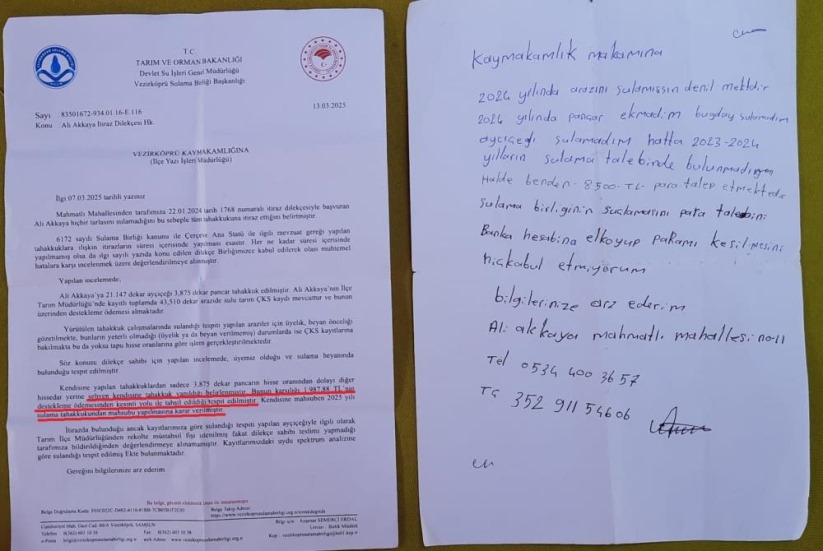 T.C.
TARIM VE ORMAN BAKANLIĞI
Devlet Su İşleri Genel Müdürlüğü
Vezirköprü Sulama Birliği Başkanlığı
13.03.2025
Sayı : 83501672-934.01.16-E.116
Konu : Ali Akkaya İtiraz Dilekçesi Hk.
VEZİRKÖPRÜ KAYMAKAMLIĞINA
(İlçe Yazı İşleri Müdürlüğü)
İlgi 07.03.2025 tarihli yazınız
Mahmatlı Mahallesinden tarafımıza 22.01.2024 tarih 1768 numaralı itiraz dilekçesiyle başvuran
Ali Akkaya hiçbir tarlasını sulamadığını bu sebeple tüm tahakkukuna itiraz ettiğini belirtmiştir.
6172 sayılı Sulama Birliği kanunu ile Çerçeve Ana Statü ile ilgili mevzuat gereği yapılan
tahakkuklara ilişkin itirazların süresi içerisinde yapılması esastır. Her ne kadar süresi içerisinde
yapılmamış olsa da ilgi sayılı yazıda konu edilen dilekçe Birliğimizce kabul edilerek olası muhtemel
hatalara karşı incelenmek üzere değerlendirmeye alınmıştır.
Yapılan incelemede,
Ali Akkaya'ya 21.147 dekar ayçiçeği 3,875 dekar pancar tahakkuk edilmiştir. Ali Akkaya'nın İlçe
Tarım Müdürlüğü'nde kayıtlı toplamda 43,510 dekar arazide sulu tarım ÇKS kaydı mevcuttur ve bunun
üzerinden destekleme ödemesi almaktadır.
Yürütülen tahakkuk çalışmalarında sulandığı tespiti yapılan araziler için üyelik, beyan önceliği
gözetilmekte, bunların yeterli olmadığı (üyelik ya da beyan verilmemiş) durumlarda ise ÇKS kayıtlarına
bakılmakta bu da yoksa tapu hisse oranlarına göre işlem gerçekleştirilmektedir.
Söz konusu dilekçe sahibi için yapılan incelemede, üyemiz olduğu ve sulama beyanında
bulunduğu tespit edilmiştir.
Kendisine yapılan tahakkuklardan sadece 3,875 dekar pancarın hisse oranından dolayı diğer
hissedar yerine sehven kendisine tahakkuk yapıldığı belirlenmiştir. Bunun karşılığı 1.987,88 TL'nin
destekleme ödemesinden kesinti yolu ile tahsil edildiği tespit edilmiştir. Kendisine mahsuben 2025 yılı
sulama tahakkukundan mahsubu yapılmasına karar verilmiştir.
İtirazda bulunduğu ancak kayıtlarımıza göre sulandığı tespiti yapılan ayçiçeğiyle ilgili olarak
Tarım İlçe Müdürlüğünden rekolte müstahsil fişi istenilmiş fakat dilekçe sahibi teslimi yapmadığı
tarafımıza bildirildiğinden değerlendirmeye alınamamıştır. Kayıtlarımızdaki uydu spektrum analizine
göre sulandığı tespit edilmiş Ekte bulunmaktadır.
Gereğini bilgilerinize arz ederim
Bu belge, güvenli elektronik imza ile imzalanmıştır.
Kaymakamlık makamına
2024 yılında arazini sulamışsın denil mektdir
2024 yılında pancar ekmadım buğday sulamadım
ayçiçeği sulamadım hatta 2023-2024
yılların sulama talebinde bulunmadığım
Halde benden 8500-TL para talep etmektedir
Sulama birliğinin suçlamasını para talebini
Banka hesabına elkoyup paramı kesilmesini
hiçkabul etmiyorum
bilgilerinize arz ederim
Ali akkaya mahmatlı mahallesi no-11
Tel 0534 400 3657
TC 352 911 54606